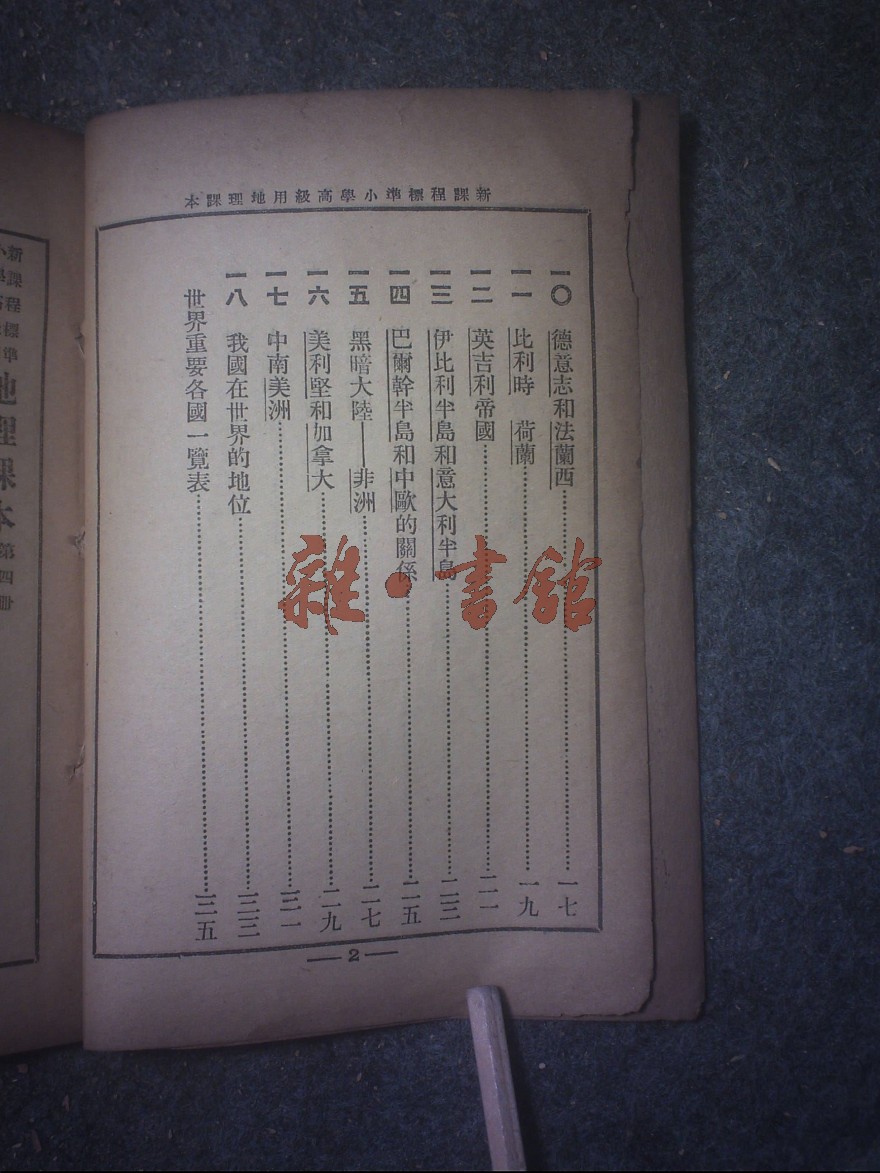 新課程標準小學高級用地理課本
一〇 德意志和法蘭西……一七
一一 比利時 荷蘭……一九
一二 英吉利帝國……二一
一三 伊比利半島和意大利半島……二三
一四 巴爾幹半島和中歐的關係……二五
一五 黑暗大陸——非洲……二七
一六 美利堅和加拿大……二九
一七 中南美洲……三一
一八 我國在世界的地位……三三
世界重要各國一覽表……三五
—2—
雜·書館
地理課本 第四冊